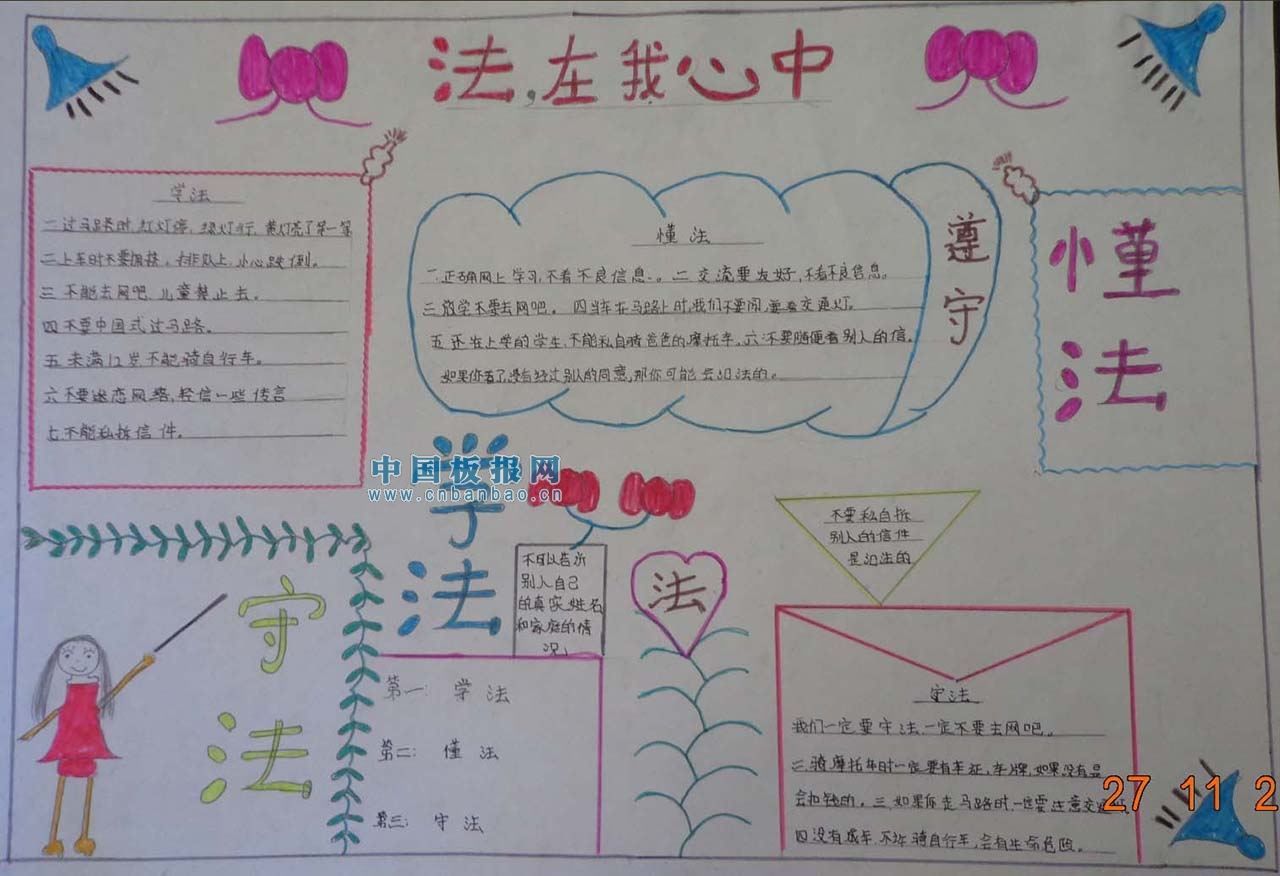 法,在我心中
学法
一过马路时,红灯停,绿灯行,黄灯亮了等一等
二上车时不要拥挤,排队上,小心跌倒。
三不能去网吧,儿童禁止去。
四不要中国式过马路。
五未满12岁不能骑自行车。
六不要迷恋网络,轻信一些传言
七不能私拆信件。
懂法
一.正确网上学习,不看不良信息。二交流要友好,不看不良信息。
三放学不要去网吧。四当车在马路上时,我们不要闹,要看交通灯。
五还在上学的学生,不能私自骑爸爸的摩托车。六不要随便看别人的信。
如果你看了没有经过别人的同意,那你可能会犯法的。
遵守
懂法
学法
中国板报网
www.cnbanbao.cn
不可以告诉
别人自己
的真实姓名
和家庭的情
况。
法
不要私自拆
别人的信件
是犯法的
守法
第一:学法
第二:懂法
第三:守法
守法
我们一定要守法,一定不要去网吧。
二.骑摩托车时一定要有车证,车牌,如果没有
会扣钱的。三.如果你走马路时一定要注意交通
四没有成年,不许骑自行车,会有生命危险。
27 11 2